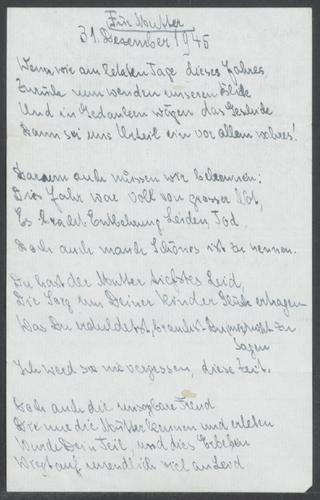 Für Mutter
31. Dezember 1945
Wenn wir am letzten Tage dieses Jahres
Zurück nun wenden unseren Blick
Und in Gedanken wägen das Geschick
Dann sei uns Urteil ein vor allem wahres!
Darum auch müssen wir bekennen:
Dies Jahr war voll von grosser Not,
Es Entbehrung Leiden, Tod
Doch auch manch Schönes ist zu nennen.
Du hast der Mutter tiefstes Leid,
Die Sorg um Deiner Kinder Glück ertragen
Was Du erduldetst, brauchst Du nicht zu
sagen
Ich werd sie nie vergessen, diese Zeit.
Doch auch die unsagbare Freud
Die nur die Mütter kennen und erleben
Wurde Dein Teil, und dies
Wiegt auf unendlich viel an Leid